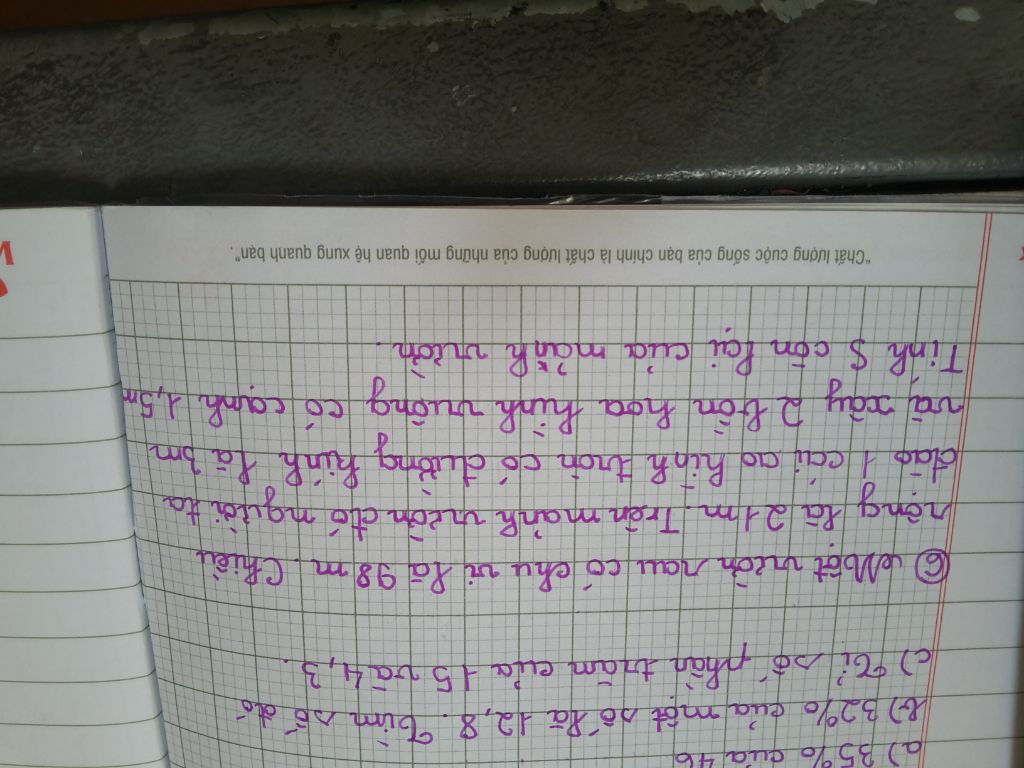 a) 35% của 46
b) 32% của một số là 12,8. Tìm số đó
c) Tỉ số phần trăm của 15 và 4,3.
⑥ Một vườn rau có chu vi là 98m. Chiều
rộng là 21m. Trên mảnh vườn đó người ta
đào 1 cái ao hình tròn có đường kính là 3m
và xây 2 bồn hoa hình vuông có cạnh 1,5m
Tính S còn lại của mảnh vườn.
"Chất lượng cuộc sống của bạn chính là chất lượng của những mối quan hệ xung quanh bạn".